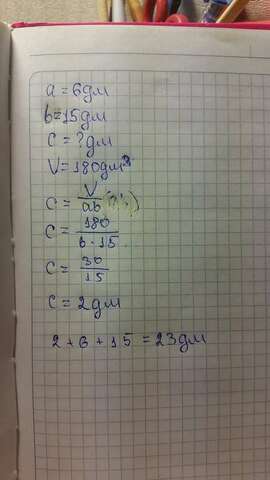 a = 6дм
b = 15дм
c = ? дм
V = 180дм³
c = V / ab
c = 180 / 6 · 15
c = 30 / 15
c = 2дм
2 + 6 + 15 = 23дм